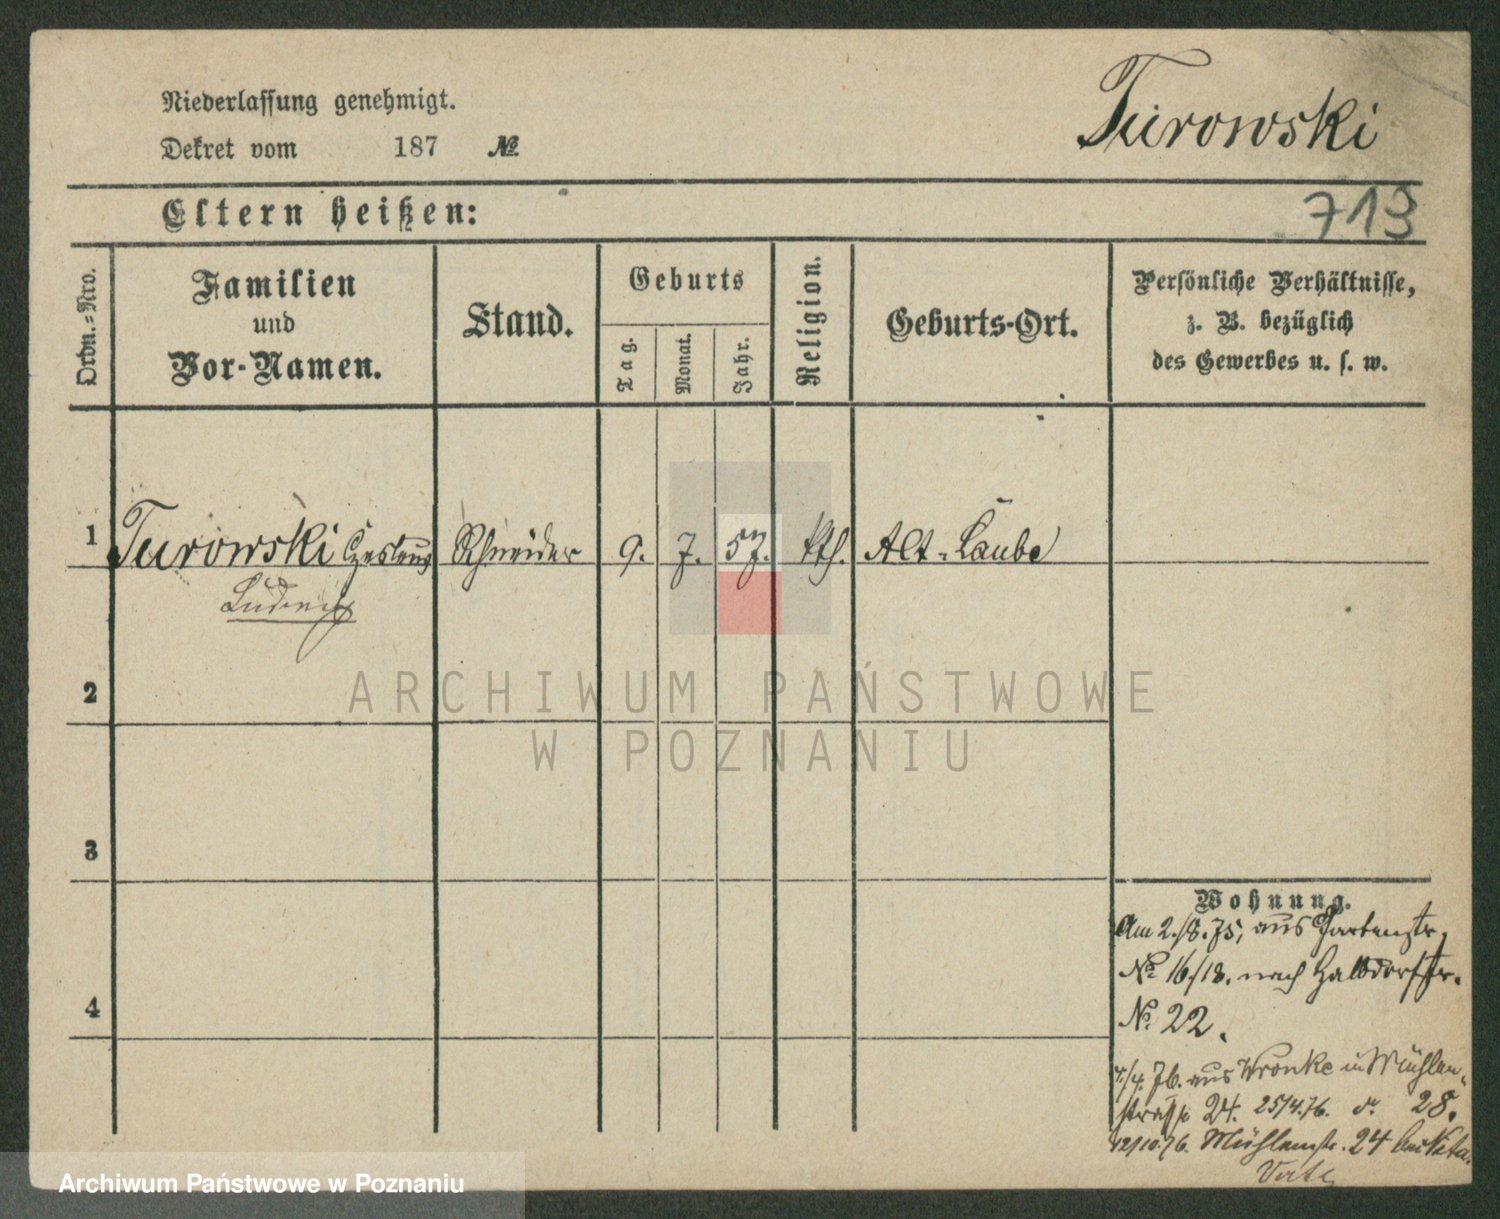 Turowski
Niederlassung genehmigt.
Dekret vom 187 №
Eltern heißen:
713
Ordn.-Nro.
Familien
und
Vor-Namen.
Stand.
Geburts
Tag.
Monat.
Jahr.
Religion.
Geburts-Ort.
Persönliche Verhältnisse,
z. B. bezüglich
des Gewerbes u. s. w.
1 Turowski Czeslaus Schneider 9. 7. 57. kth. Alt-Laube
Ludwig
2
ARCHIWUM PAŃSTWOWE
W POZNANIU
3
Wohnung.
Am 2./8.75, aus Gartenstr.
No. 16/18. nach Halbdorfstr.
4
No. 22.
/4. 76. aus Wronke in Mühlen-
strasse 24. 25/4.76. 28.
12/10.76. Mühlenstr. 24 bei
Archiwum Państwowe w Poznaniu